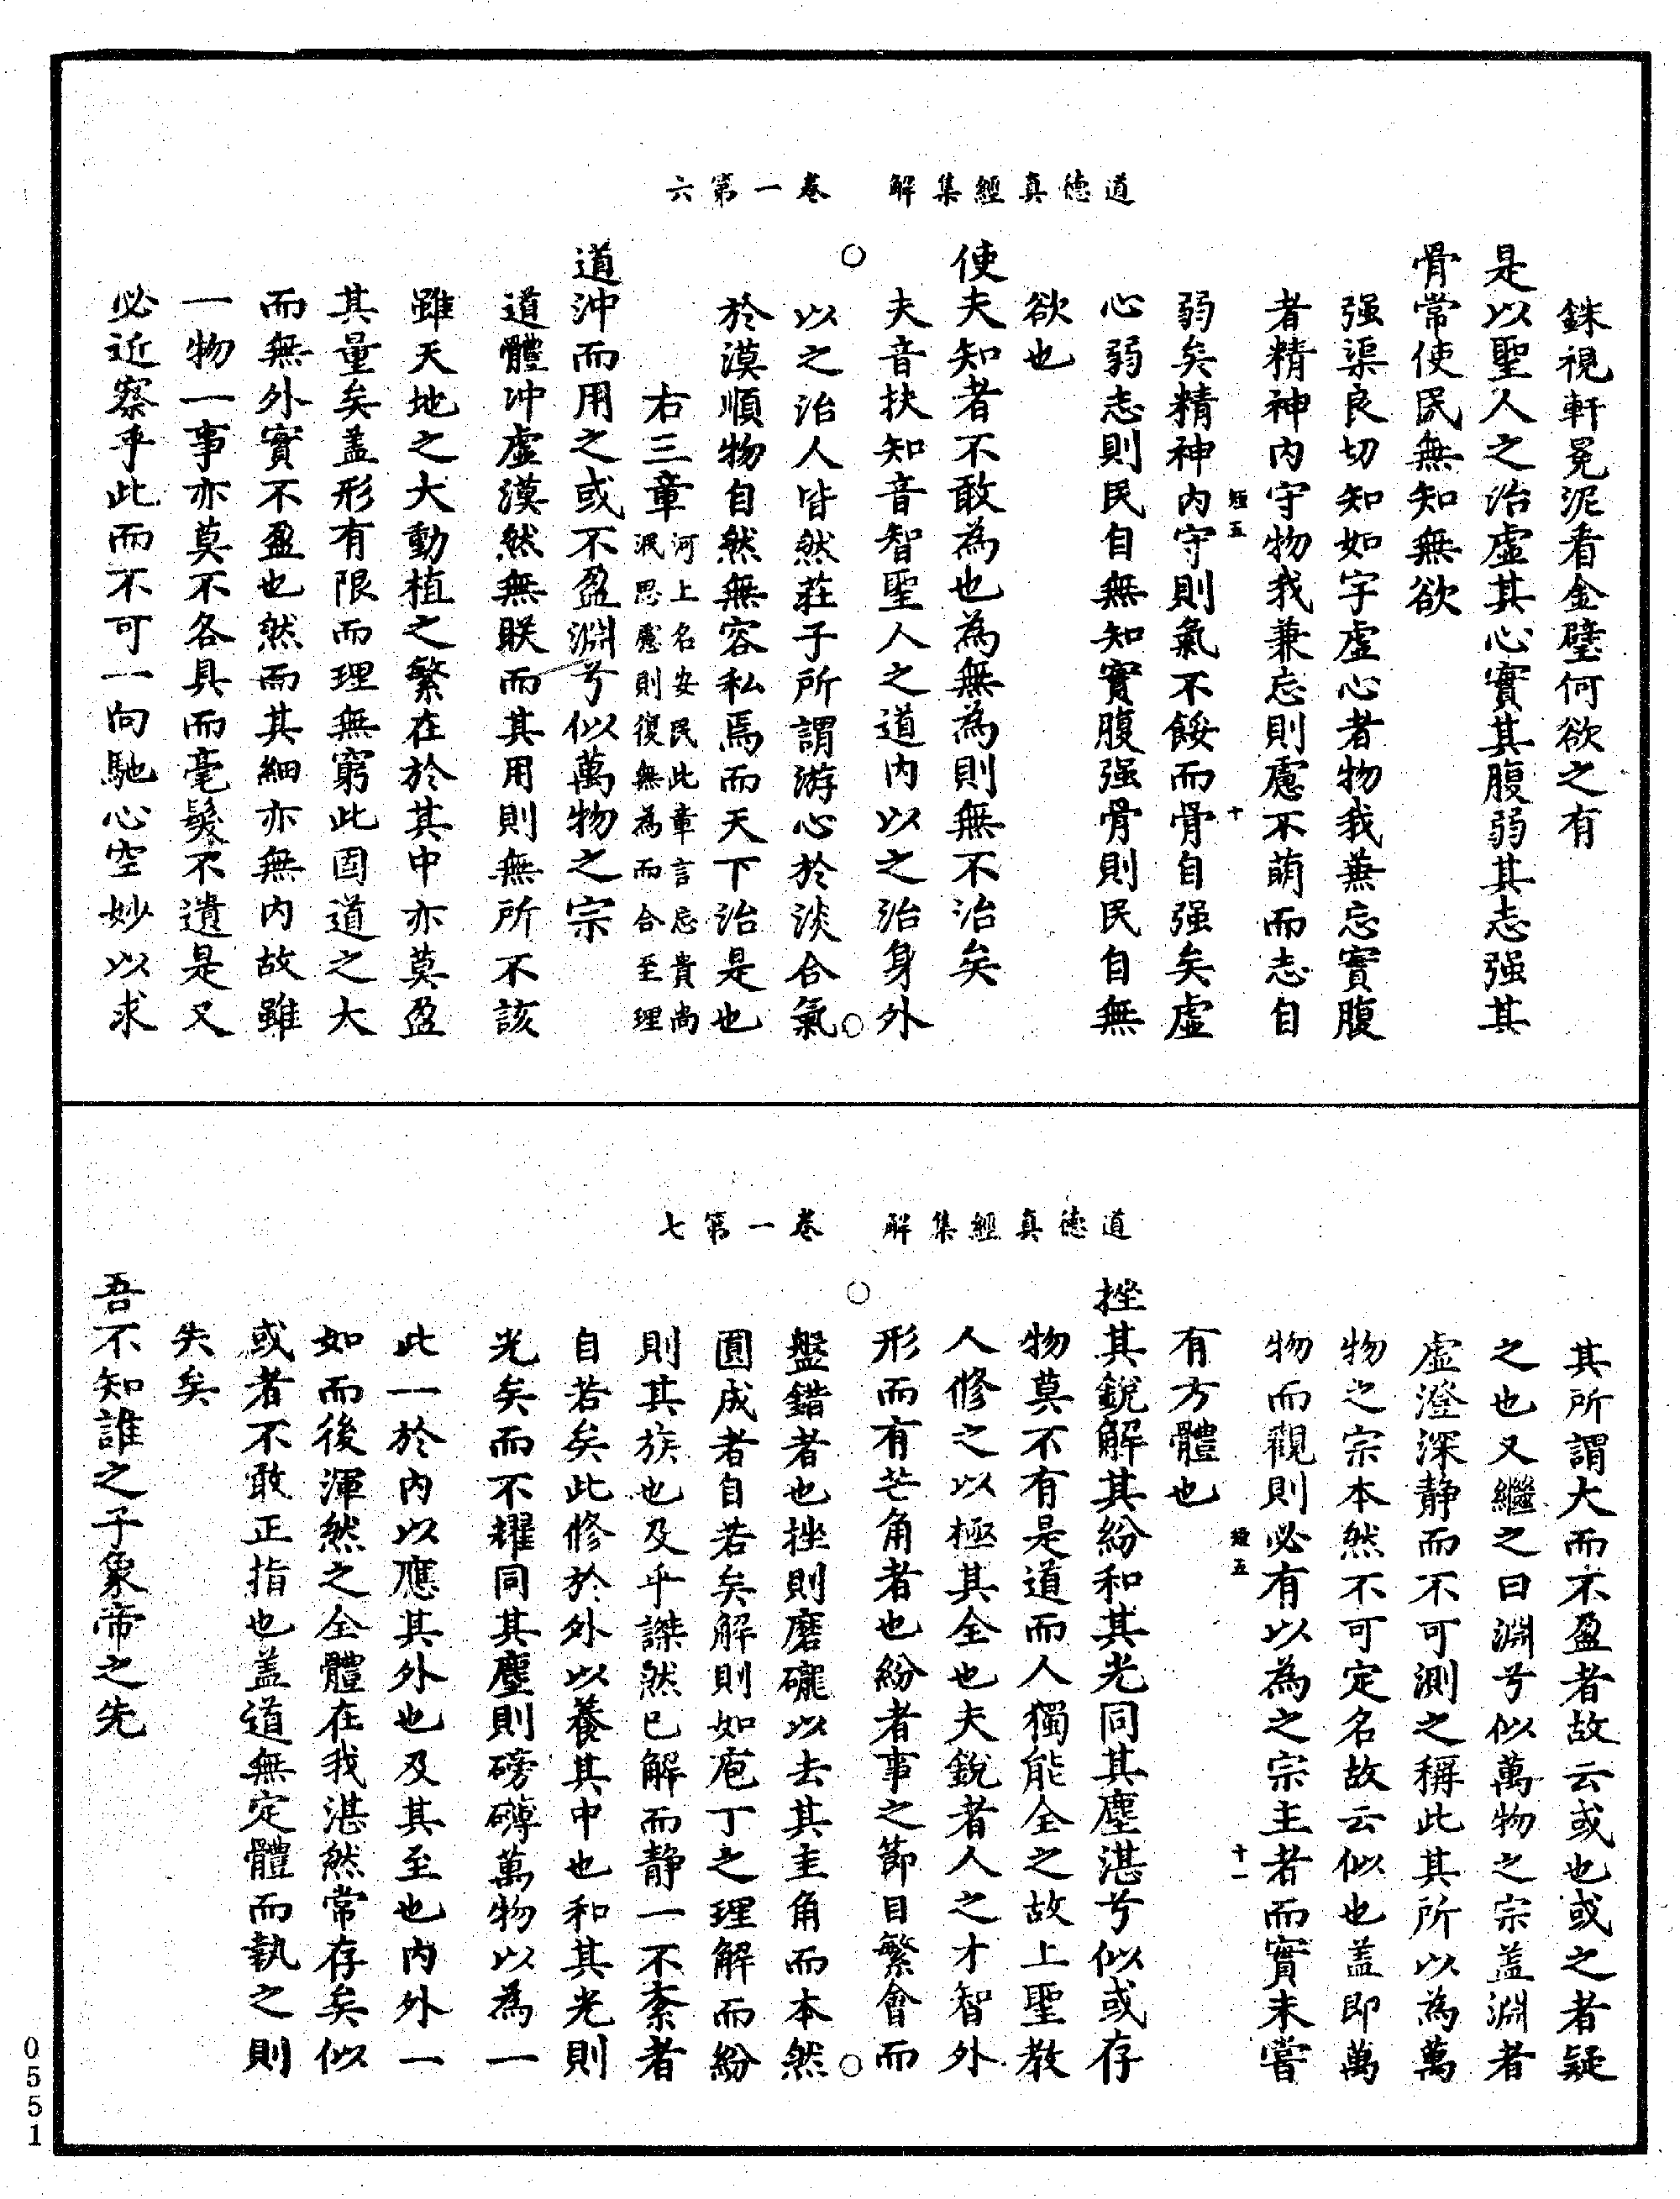 道德真經集解　卷一第六
銖視軒冕泥看金璧何欲之有
是以聖人之治虛其心實其腹弱其志强其
骨常使民無知無欲
强渠良切知如字虛心者物我兼忘實腹
者精神內守物我兼忘則慮不萌而志自
短五　十
弱矣精神內守則氣不餒而骨自强矣虛
心弱志則民自無知實腹强骨則民自無
欲也
使夫知者不敢為也為無為則無不治矣
夫音扶知音智聖人之道內以之治身外
以之治人皆然莊子所謂游心於淡合氣
於漠順物自然無容私焉而天下治是也
右三章河上名安民此章言忘貴尚
泯思慮則復無為而合至理
道沖而用之或不盈淵兮似萬物之宗
道體沖虛漠然無眹而其用則無所不該
雖天地之大動植之繁在於其中亦莫盈
其量矣盖形有限而理無窮此固道之大
而無外實不盈也然而其細亦無內故雖
一物一事亦莫不各具而毫髮不遺是又
必近察乎此而不可一向馳心空妙以求
道德真經集解　卷一第七
其所謂大而不盈者故云或也或之者疑
之也又繼之曰淵兮似萬物之宗盖淵者
虛澄深静而不可測之稱此其所以為萬
物之宗本然不可定名故云似也盖即萬
物而觀則必有以為之宗主者而實未嘗
短五　十一
有方體也
挫其銳解其紛和其光同其塵湛兮似或存
物莫不有是道而人獨能全之故上聖教
人修之以極其全也夫銳者人之才智外
形而有芒角者也紛者事之節目繁會而
盤錯者也挫則磨礲以去其圭角而本然
圓成者自若矣解則如庖丁之理解而紛
則其族也及乎謋然已解而静一不紊者
自若矣此修於外以養其中也和其光則
光矣而不耀同其塵則磅礴萬物以為一
此一於內以應其外也及其至也內外一
如而後渾然之全體在我湛然常存矣似
或者不敢正指也盖道無定體而執之則
失矣
吾不知誰之子象帝之先
0551